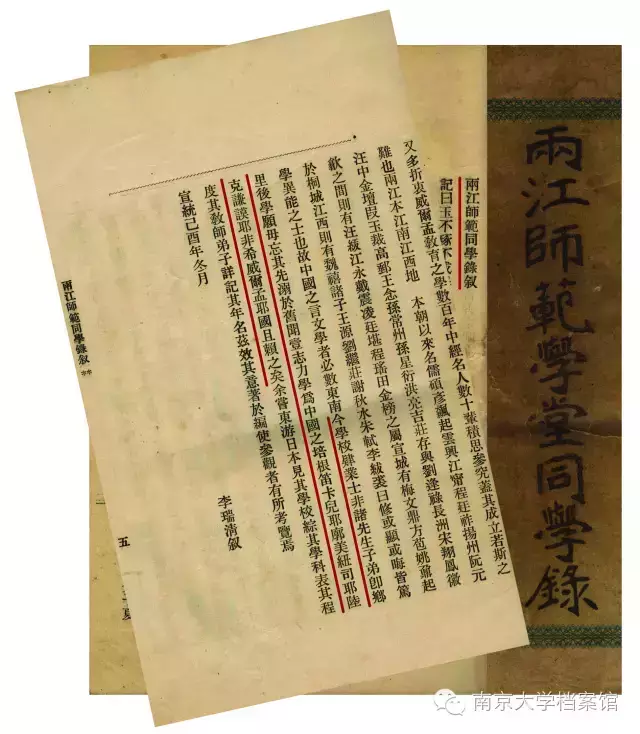 兩江師範學堂同學錄
兩江師範同學錄叙
記曰玉不琢不成
又多折衷威爾孟敎育之學數百年中經名人數十輩積思參究蓋其成立若斯之
難也兩江本江南江西地 本朝以來名儒碩彥飆起雲興江甯程廷祚揚州阮元
汪中金壇段玉裁高郵王念孫常州孫星衍洪亮吉莊存與劉逢祿長洲宋翔鳳徽
歙之間則有汪紱江永戴震凌廷堪程瑤田金榜之屬宣城有梅文鼎方苞姚鼐起
於桐城江西則有魏禧諸子王源劉繼莊謝秋水朱軾李紱裘曰修或顯或晦皆篤
學異能之士也故中國之言文學者必數東南今學校肄業士非諸先生子弟卽鄉
里後學願毋忘其先溺於舊聞壹志力學爲中國之培根笛卡兒耶廓美紐司耶陸
克謙謨耶非希威爾孟耶國且賴之矣余嘗東游日本見其學校綜其學科表其程
度其敎師弟子詳記其年名茲效其意著於編使參觀者有所考覽焉
李瑞清叙
宣統己酉年冬月
兩江師範同學錄叙
五
南京大学档案馆